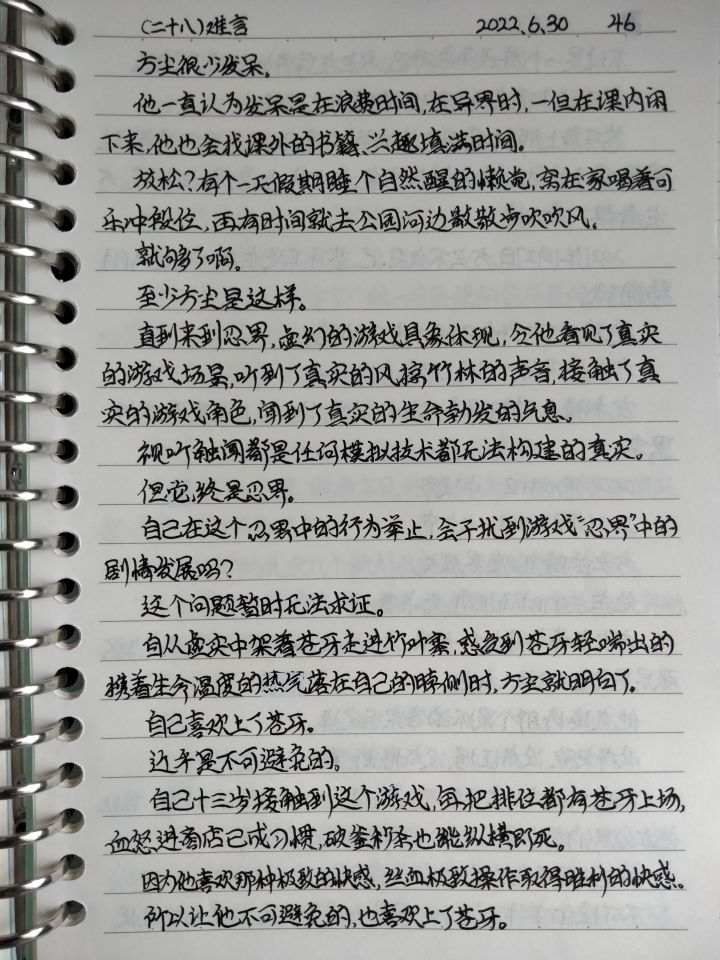 (二十八)难言 2022.6.30 46
方尘很少发呆。
他一直认为发呆是在浪费时间,在异界时,一但在课内闲
下来,他也会找课外的书籍、兴趣填满时间。
放松?有个一天假期睡个自然醒的懒觉,窝在家喝着可
乐冲段位,再有时间就去公园河边散散步吹吹风。
就够了啊。
至少方尘是这样。
直到来到忍界,虚幻的游戏具象体现,令他看见了真实
的游戏场景,听到了真实的风掠竹林的声音,接触了真
实的游戏角色,闻到了真实的生命勃发的气息。
视听触闻都是任何模拟技术都无法构建的真实。
但说,终是忍界。
自己在这个忍界中的行为举止,会干扰到游戏“忍界”中的
剧情发展吗?
这个问题暂时无法求证。
自从虚实中架着苍牙走进竹叶雾,感受到苍牙轻喘出的
携着生命温度的热气落在自己的脖侧时,方尘就明白了。
自己喜欢上了苍牙。
近乎是不可避免的。
自己十三岁接触到这个游戏,每把排位都有苍牙上场,
血怒进商店已成习惯,破釜秒杀也能纵横即死。
因为他喜欢那种极致的快感,丝血极致操作取得胜利的快感。
所以让他不可避免的,也喜欢上了苍牙。